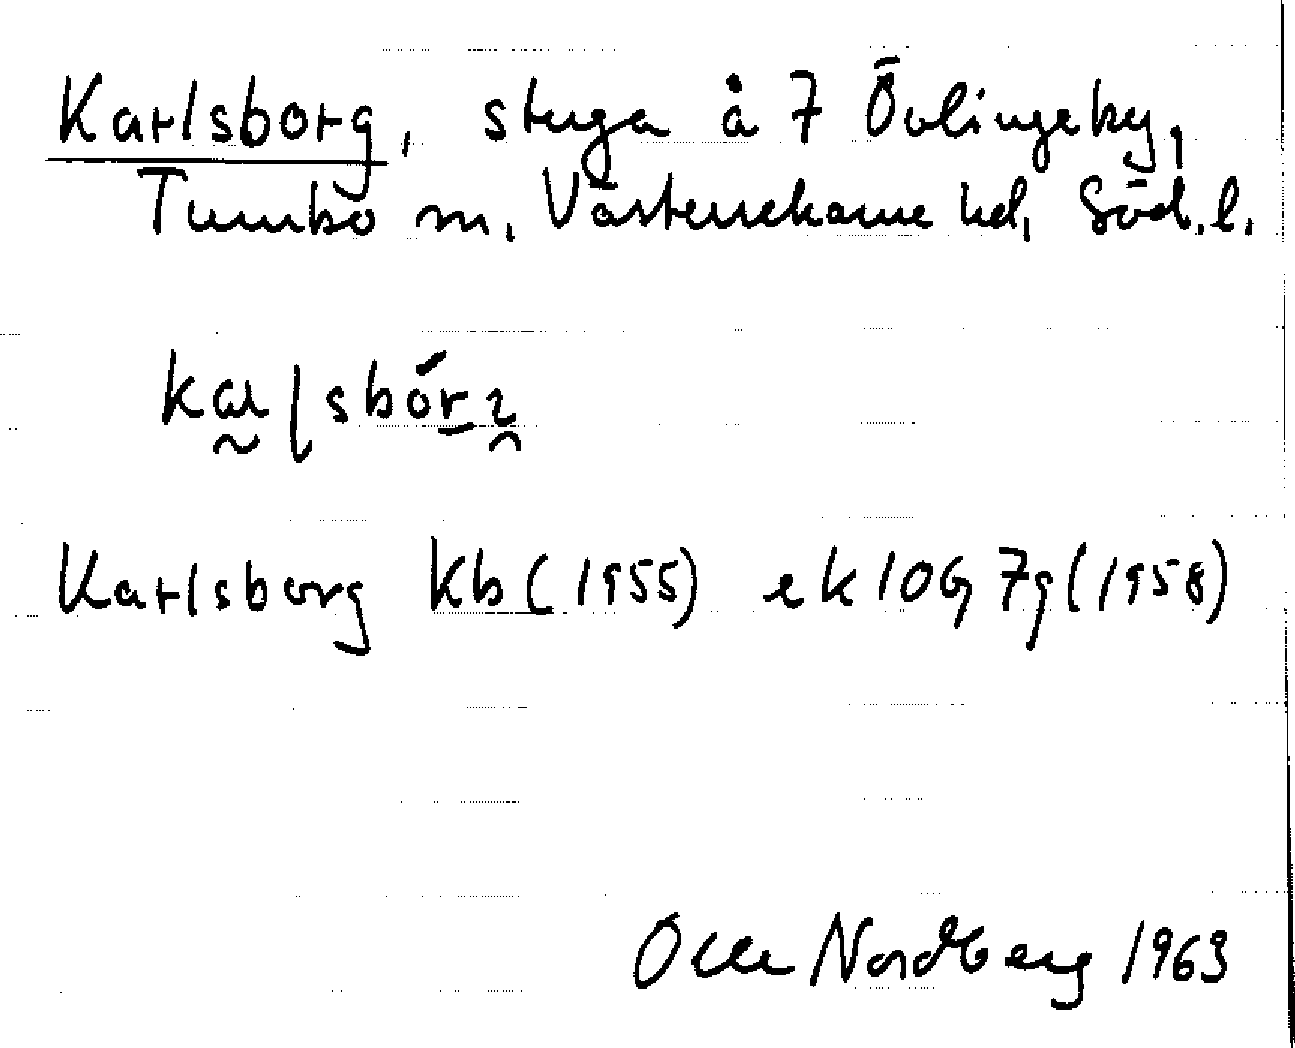 Karlsborg, stuga å 7 Övlingeby,
Tumbo sn, Västerrekarne hd, Söd.l.
Karlsborg Kb (1955) ek 10G 7g (1958)
Olle Nordberg 1963